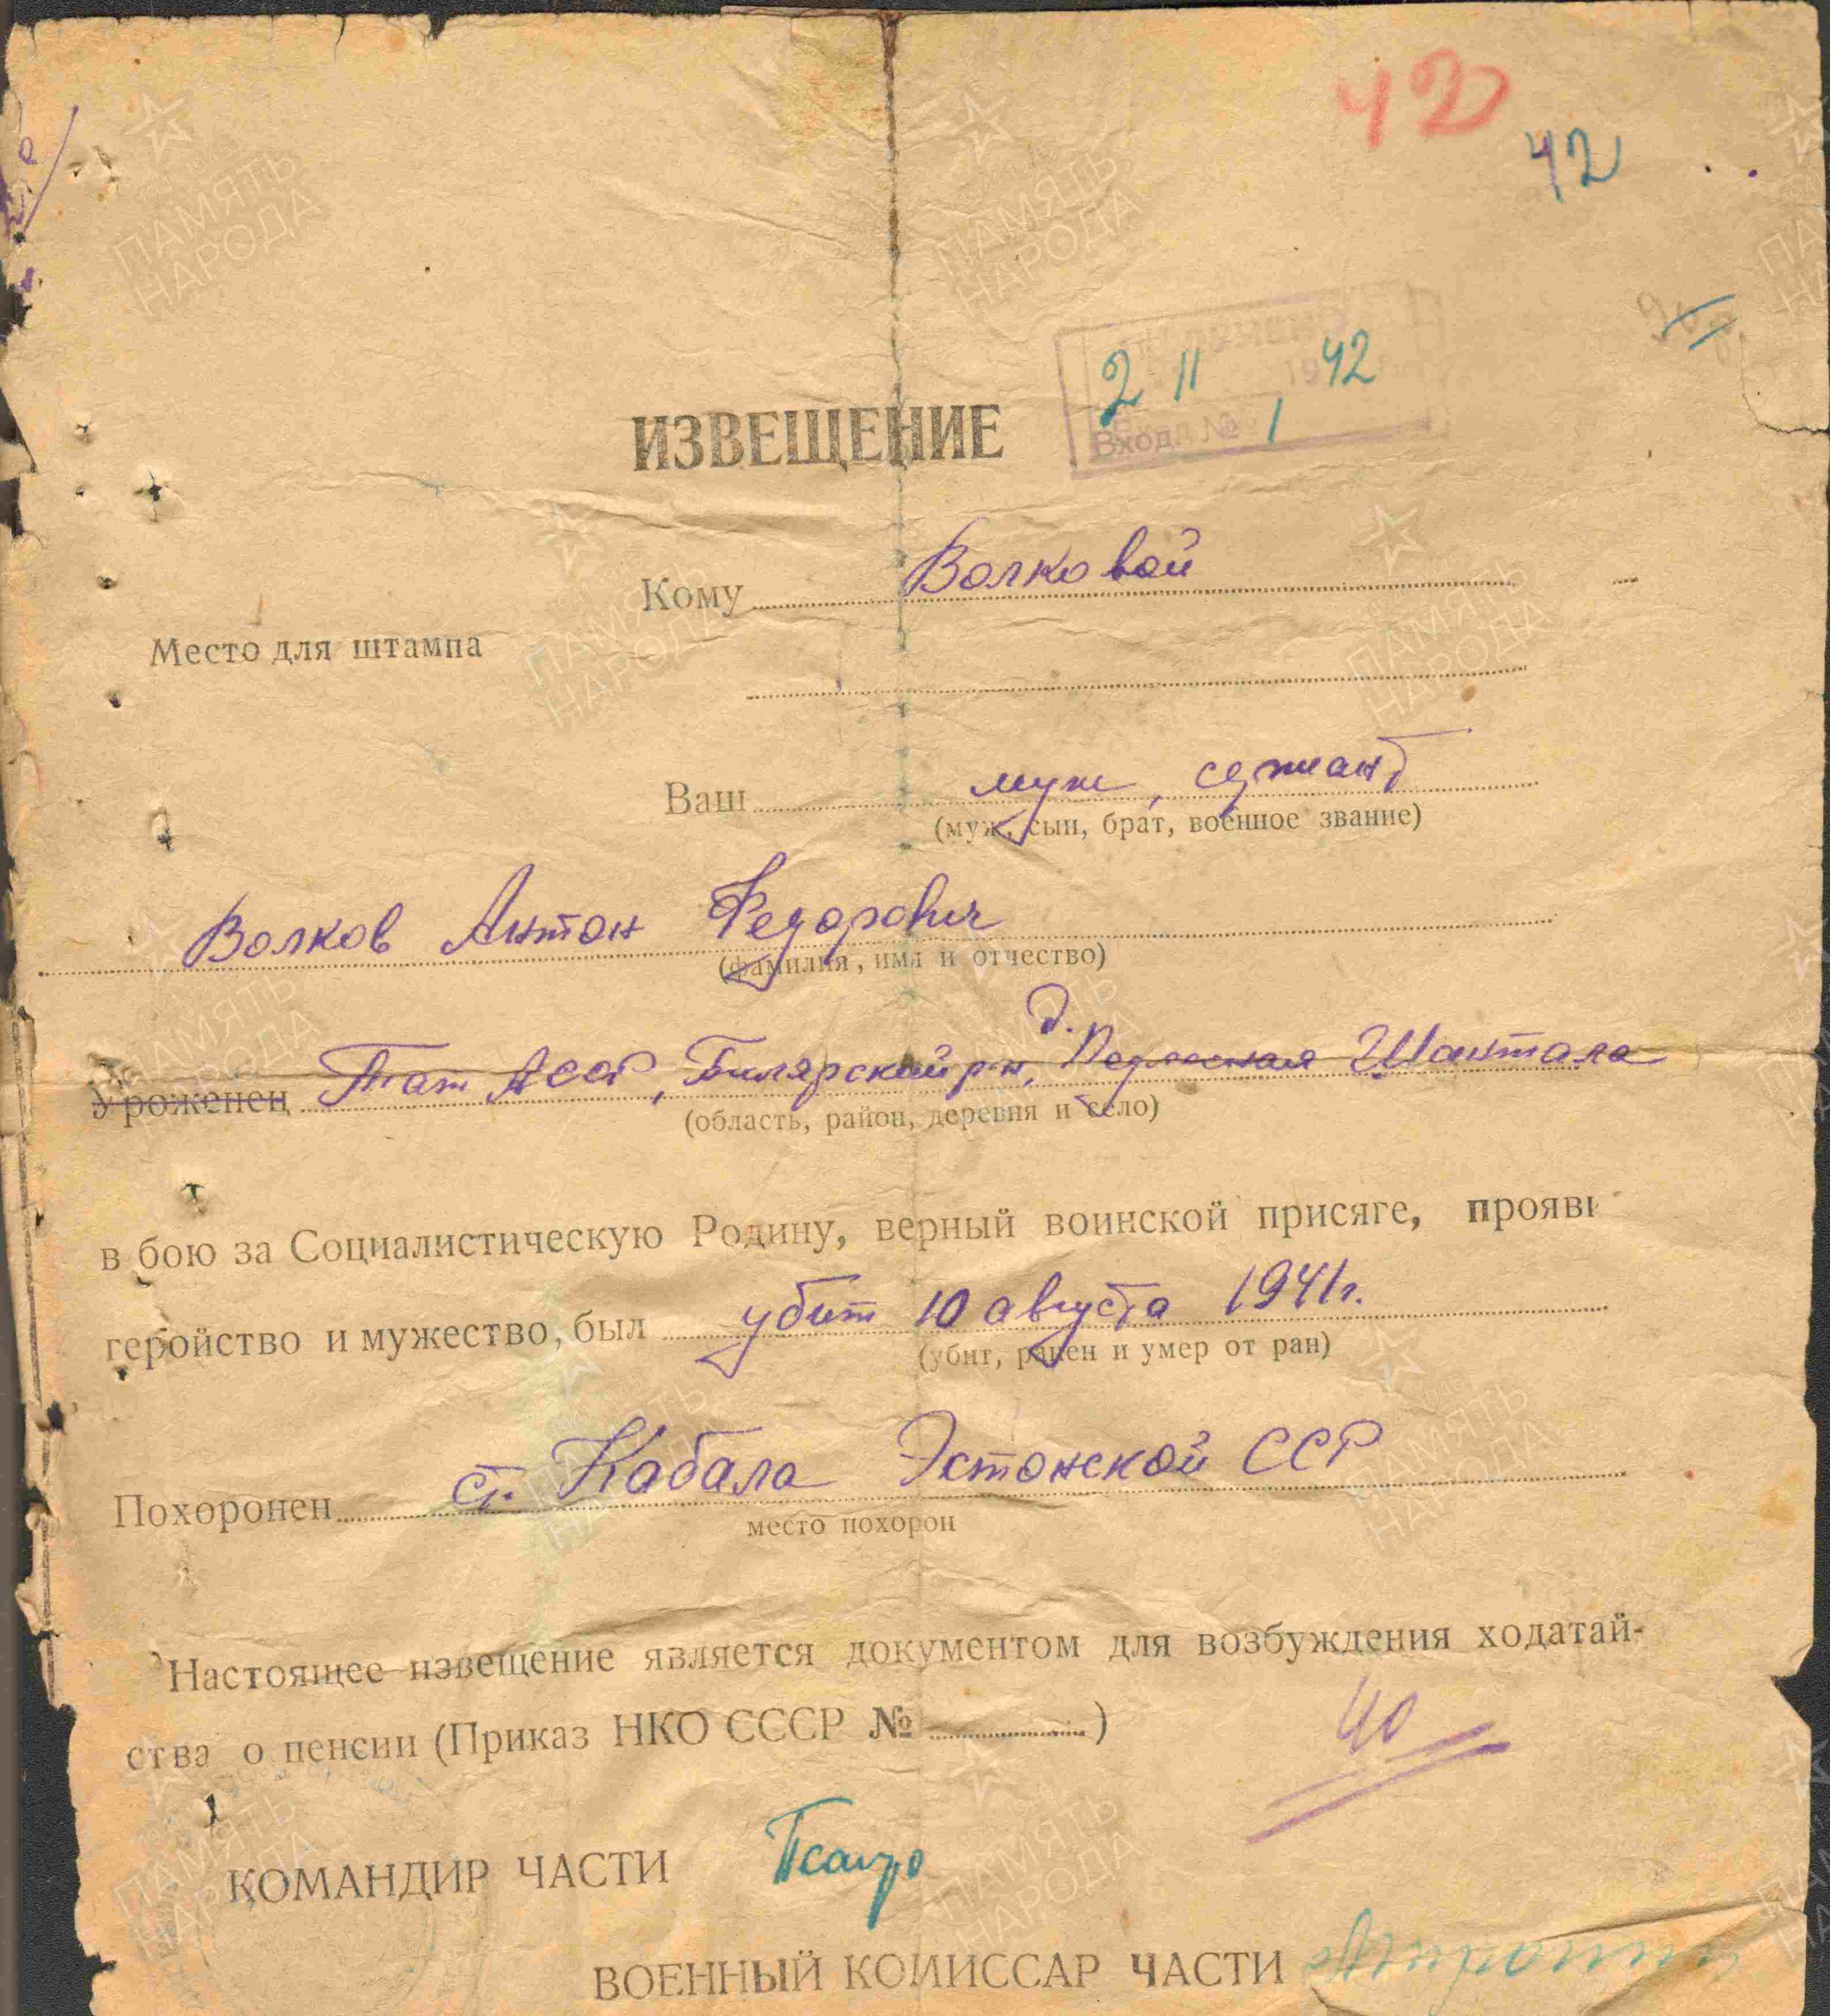 42
42
2 11 1942
Вход. № 1
ИЗВЕЩЕНИЕ
Кому Волковой
Место для штампа
Ваш муж, сержант
(муж, сын, брат, военное звание)
Волков Антон Федорович
(фамилия, имя и отчество)
д.
Уроженец Тат АССР, Билярский р-н, Шантала
(область, район, деревня и село)
в бою за Социалистическую Родину, верный воинской присяге, прояви
геройство и мужество, был убит 10 августа 1941 г.
(убит, ранен и умер от ран)
Похоронен ст. Кабала Эстонской ССР
место похорон
Настоящее извещение является документом для возбуждения ходатай-
ства о пенсии (Приказ НКО СССР № )
40
КОМАНДИР ЧАСТИ
ВОЕННЫЙ КОМИССАР ЧАСТИ
ПАМЯТЬ
НАРОДА